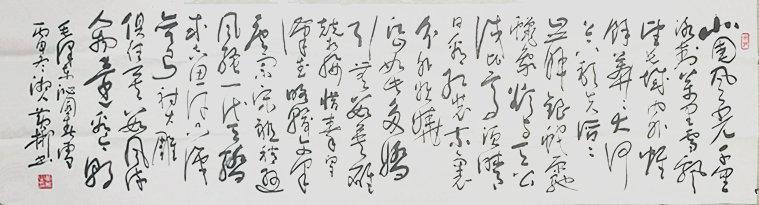 北国风光千里
冰封万里雪飘
望长城内外惟
余莽莽大河
上下顿失滔滔
山舞银蛇原驰
蜡象欲与天公
试比高须晴
日看红装素裹
分外妖娆
江山如此多娇
引无数英雄
竞折腰惜秦皇
汉武略输文采
唐宗宋祖稍逊
风骚一代天骄
成吉思汗只识
弯弓射大雕
俱往矣数风流
人物还看今朝
毛泽东沁园春雪